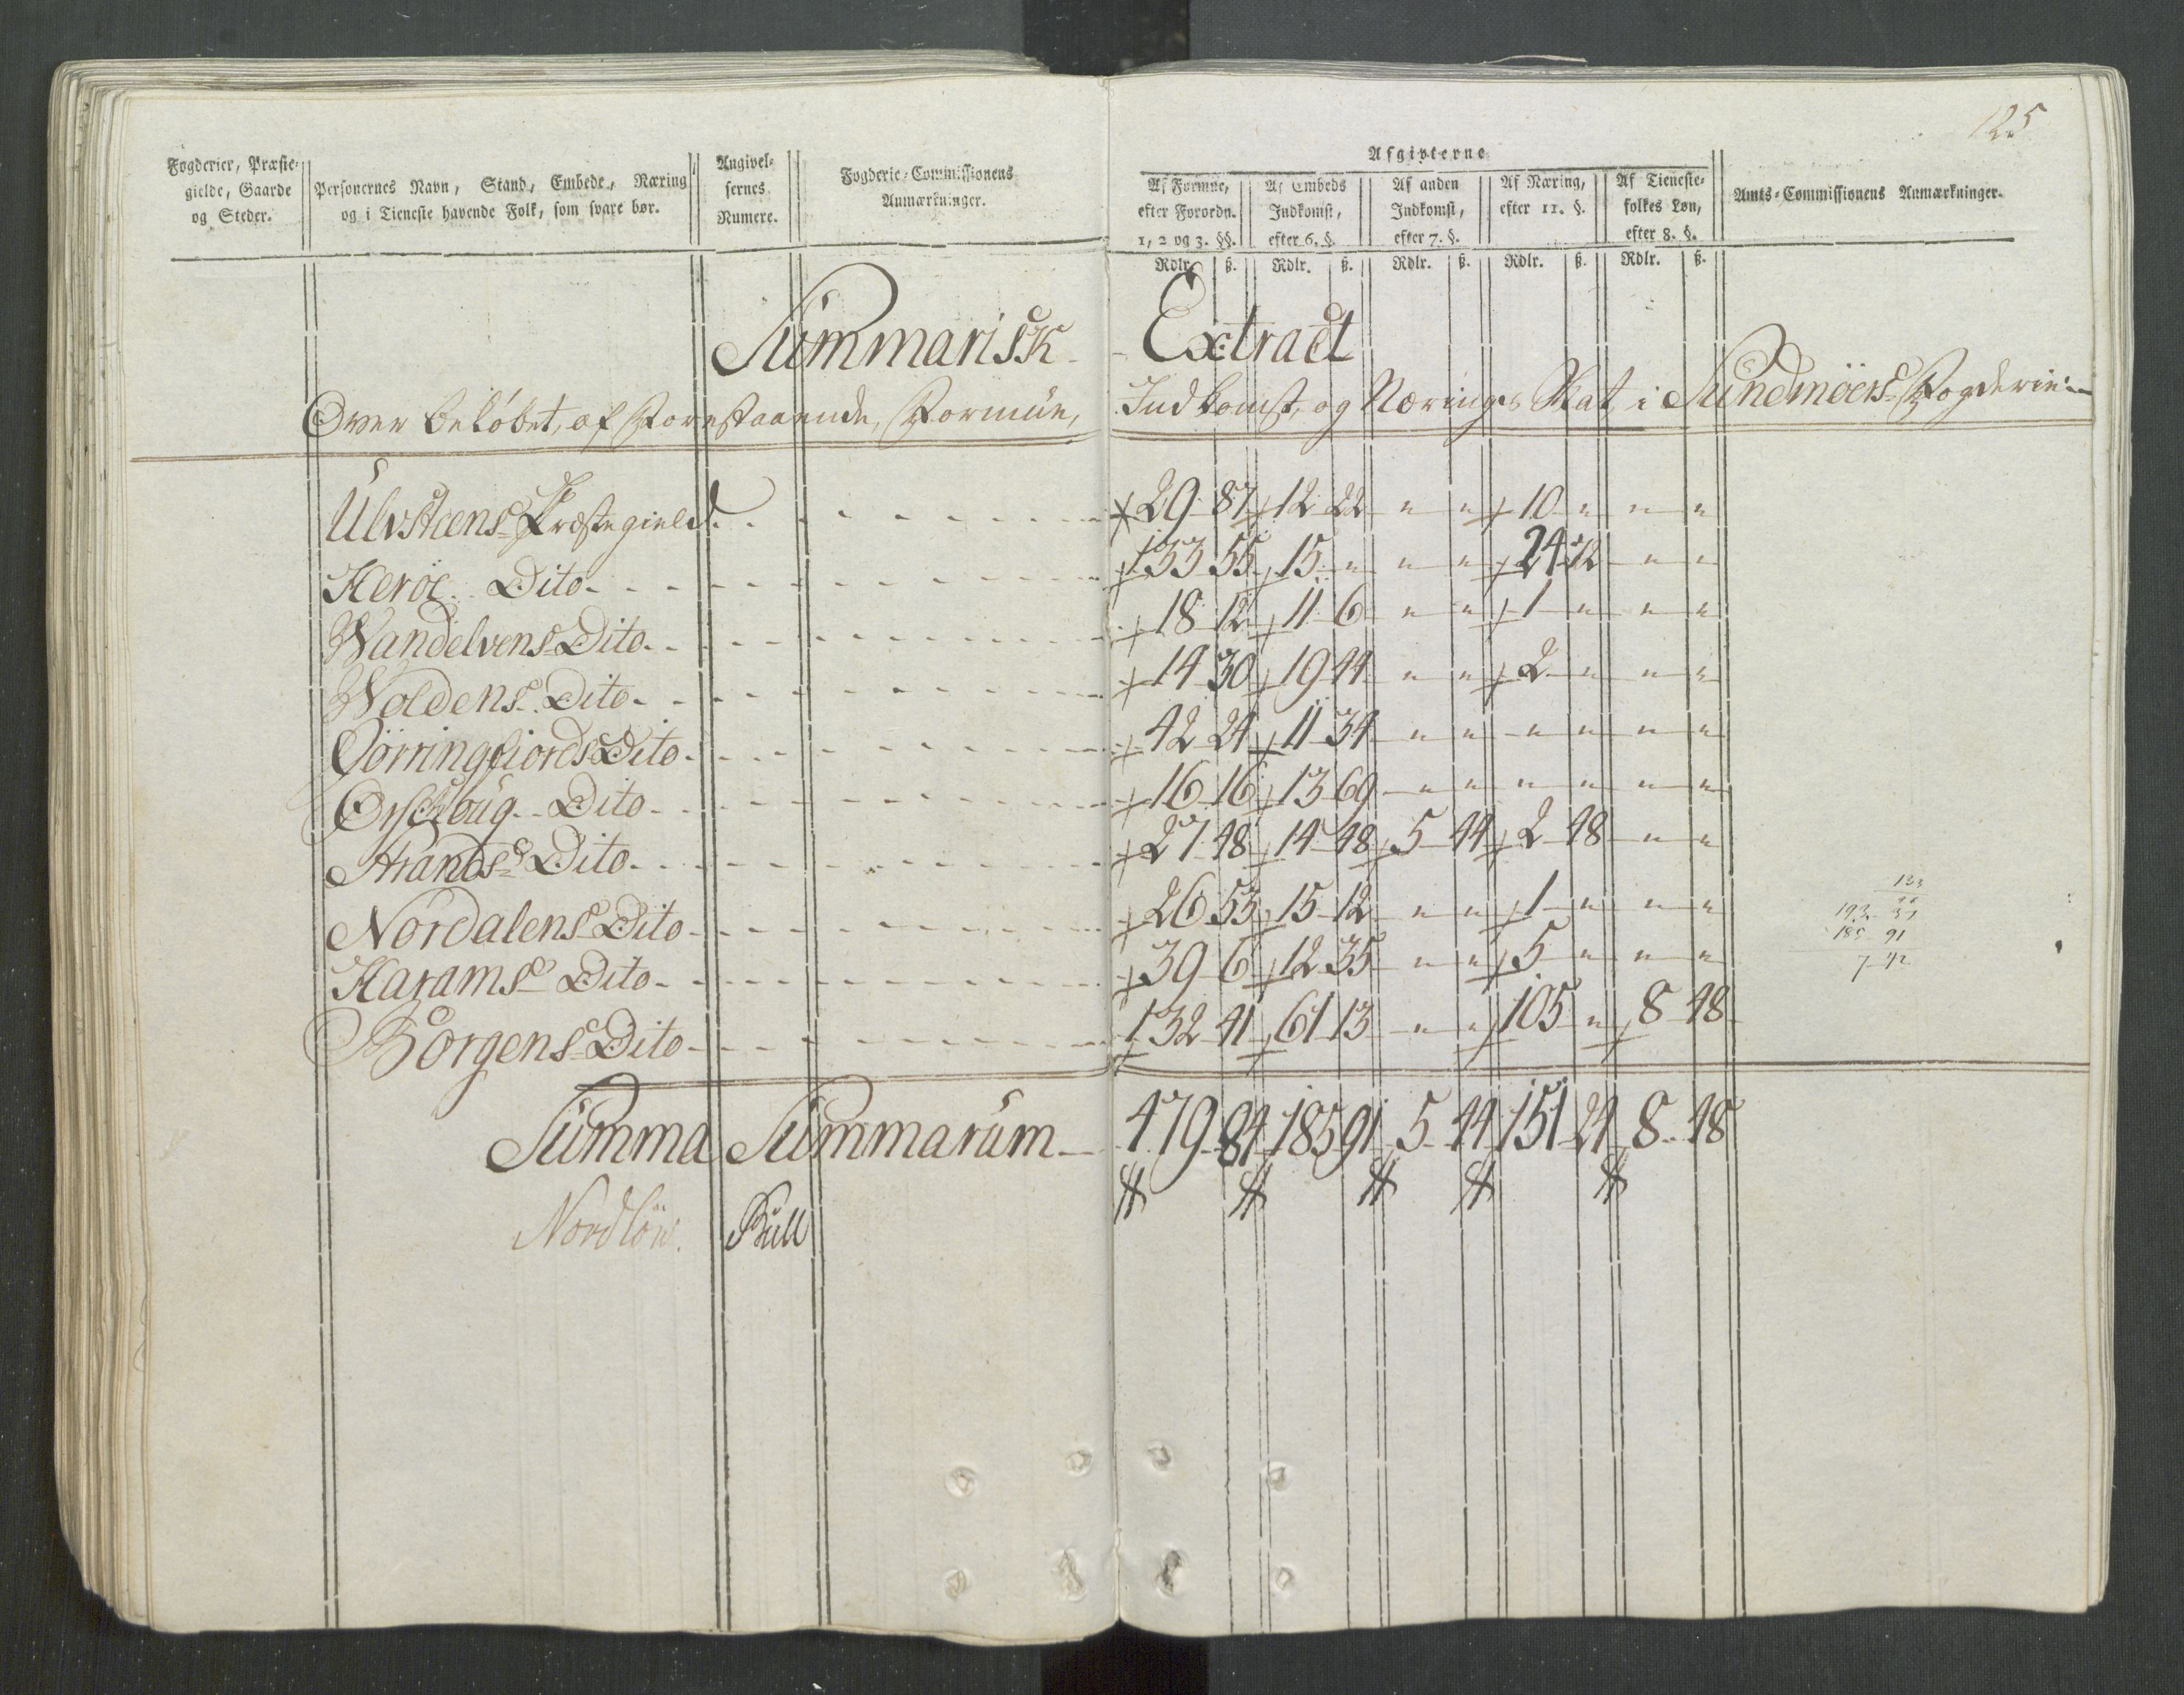 125
Fogderier, Præste-
gielde, Gaarde
og Steder.
Personernes Navn, Stand, Embede, Næring
og i Tieneste havende Folk, som svare bør.
Angivel-
sernes
Numere.
Fogderie-Commissionens
Anmærkninger.
Afgivterne
Af Formue,
efter Forordn.
1, 2 og 3. §§.
Af Embeds
Indkomst,
efter 6. §.
Af anden
Indkomst,
efter 7. §.
Af Næring,
efter 11. §.
Af Tieneste-
folkes Løn,
efter 8. §.
Amts-Commissionens Anmærkninger.
Rdlr. ß. Rdlr. ß. Rdlr. ß. Rdlr. ß. Rdlr. ß.
Summarisk Extract
Over beløbet, af Forestaaende, Formue, Indkomst, og Nærings Skat, i Sundmöers Fogderie
Ulvsteens Præstegield 29 87 12 22 " " 10 " " "
Heröe Dito 133 55 15 " " " 24 72 " "
Wandelvens Dito 18 12 11 6 " " 1 " " "
Woldens Dito 14 30 19 44 " " 2 " " "
Jörringfiords Dito 42 24 11 34 " " " " " "
Örschoug Dito 16 16 13 69 " " " " " "
Strands Dito 27 48 14 48 5 44 2 48 " "
Nordalens Dito 26 53 15 12 " " 1 " " "
Harams Dito 39 6 12 35 " " 5 " " "
Borgens Dito 132 41 61 13 " " 105 " 8 48
Summa Summarum 479 84 185 91 5 44 151 24 8 48
133
193 37
185 91
7 42
Nordlöw. Bull